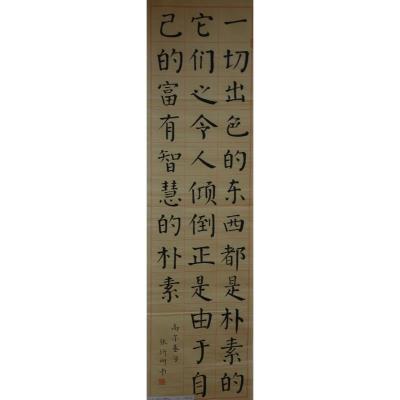 一切出色的东西都是朴素的
它们之令人倾倒正是由于自
己的富有智慧的朴素
高尔基